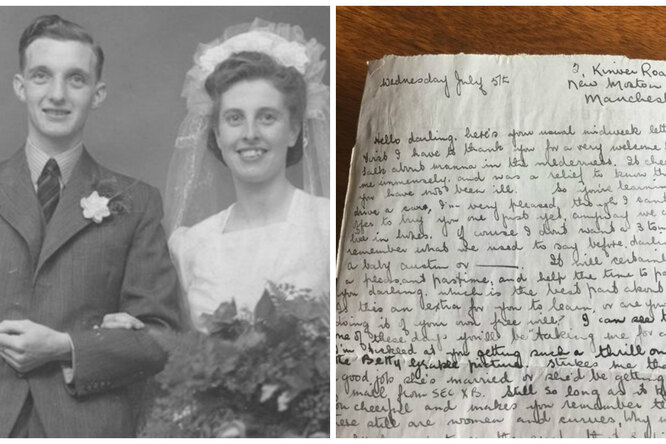 Wednesday July 5th
3, Kinver Roa
New Moston
Manches
Hello darling, here's your usual midweek lett
First I have to thank you for a very welcome
talk about manna in the wilderness. It che
me immensely, and was a relief to know th
you have not been ill. So you're learnin
drive a car, I'm very pleased, though I can't
to buy you one just yet, anyway we
live in hopes. Of course I don't want a 3 ton
remember what we used to say before, darlin
a baby austin or
It will certain
a pleasant pastime, and help the time to p
you darling, which is the best part about
Is this an extra for you to learn, or are you
doing it of your own free will? I can see t
one of these days you'll be taking me for a
I'm tickled at you getting such a thrill ou
the Betty Grable picture. Strikes me tha
good job she's married or she'd be getting
mail from SEC X B. Still so long as it
you cheerful and makes you remember th
there still are women and curves, why